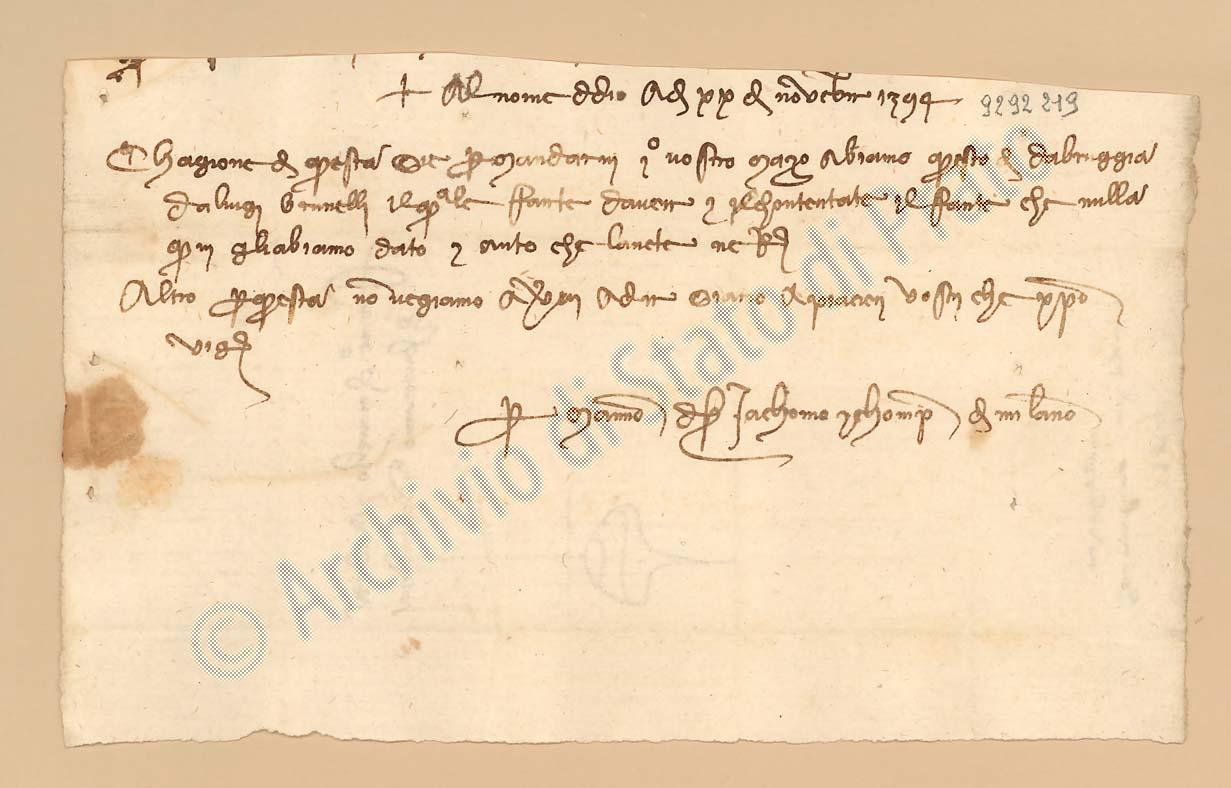 + Al nome d Dio A dì xx di novebre 1394
9292219
Chagione di questa è per mandarvi jo vostro mazo abiamo questo dì da bruggia
da luigi brunelli il quale fante d'avere e il chontentate il fante che nulla
qui gli abiamo dato e auto che l'avete ne
Altro per questa no vegiamo a dire siamo a piaceri vostri che xpo
vi
Per Manno d ser Jachomo e chomp di milano
© Archivio di Stato di Prato